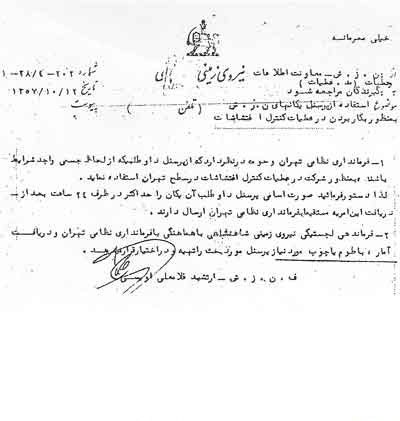 خیلی محرمانه
از : ن . ز . ش – معاونت اطلاعات و عملیات ( مد . عملیات ) نیروی زمینی شاهنشاهی شماره ۲۰۲-۴-۲۸/
به گیرندگان مراجعه شود تاریخ ۱۳۵۷/۱۰/۱۲
موضوع استفاده از پرسنل یکانهای ن . ز . ش ( تلفن ) پیوست
بمنظور بکار بردن در عملیات کنترل اغتشاشات
۱- فرمانداری نظامی تهران و حومه در نظر دارد که از پرسنل داوطلبیکه از لحاظ جسمی واجد شرایط
باشند . بمنظور شرکت در عملیات کنترل اغتشاشات در سطح تهران استفاده نماید .
لذا دستور فرمائید صورت اسامی پرسنل داوطلب آن یکان را حداکثر در ظرف ۲۴ ساعت بعد از –
دریافت این امریه مستقیما بفرمانداری نظامی تهران ارسال دارند .
۲- فرماندهی لجستیکی نیروی زمینی شاهنشاهی با هماهنگی با فرمانداری نظامی تهران و دریافت
آمار ، باطوم یا چوب مورد نیاز پرسنل مورد بحث را تهیه و در اختیار قرار دهد .
ف . ن . ز . ش – ارتشبد غلامعلی اویسی